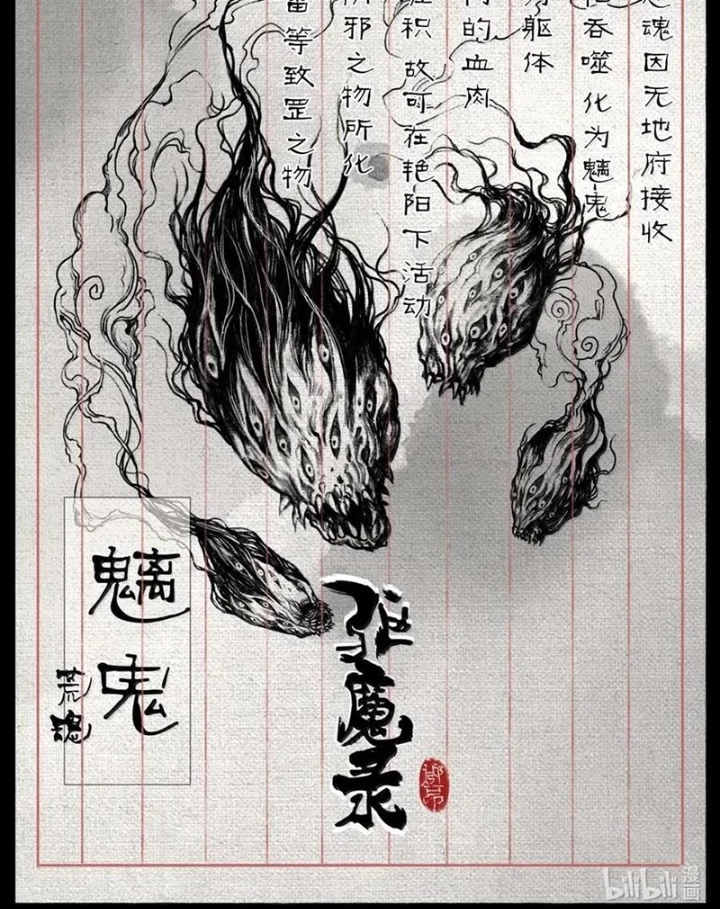 魂因无地府接收
吞噬化为魑鬼
躯体
的血肉
积故可在艳阳下活动
邪之物所化
等致罡之物
魑鬼
荒魂
驱魔录
bilibili
漫画